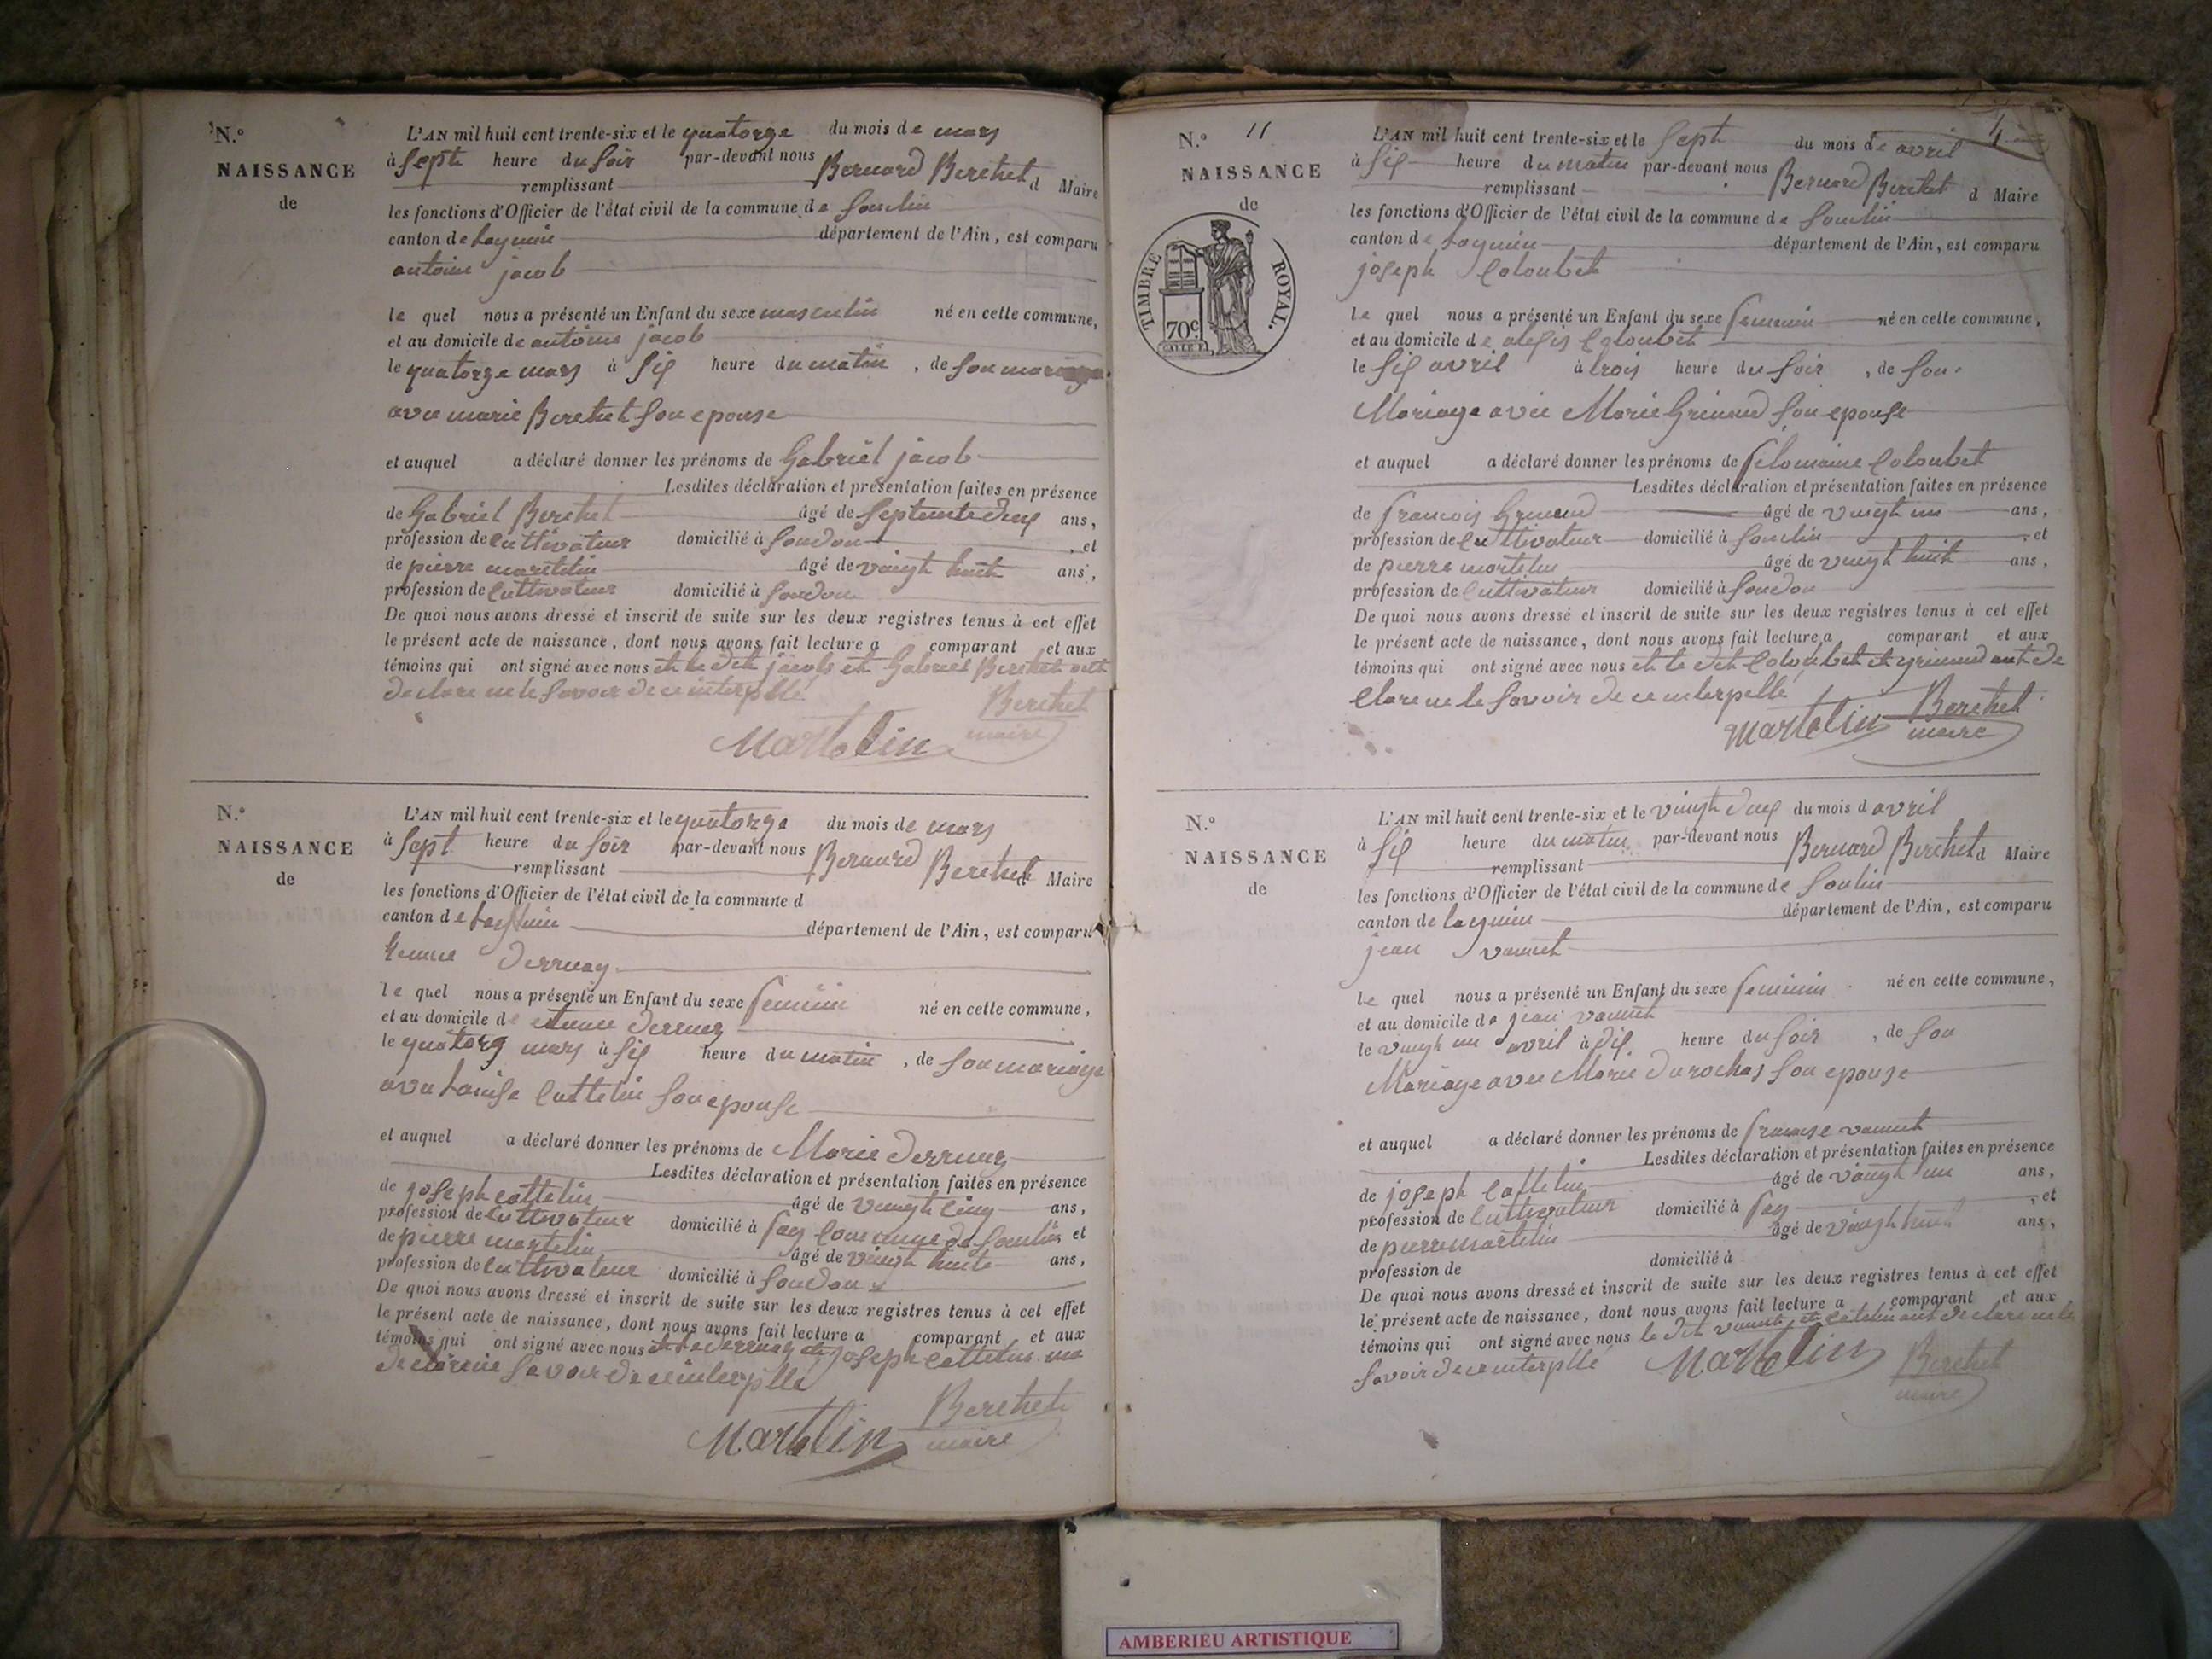 N.°
NAISSANCE
de
L'AN mil huit cent trente-six et le quatorze du mois de mars
à Sept heure du Soir par-devant nous Bernard Berthet
remplissant d Maire
les fonctions d'Officier de l'état civil de la commune de Souclin
canton de Lagnieu département de l'Ain, est comparu
antoine jacob
le quel nous a présenté un Enfant du sexe masculin né en cette commune,
et au domicile de antoine jacob
le quatorze mars à Six heure du matin, de Son mariage
avec marie Berthet Son epouse
et auquel a déclaré donner les prénoms de Gabriel jacob
Lesdites déclaration et présentation faites en présence
de Gabriel Berthet âgé de Septente deux ans,
profession de Cultivateur domicilié à Soudon, et
de pierre martelin âgé de vingt huit ans,
profession de Cultivateur domicilié à Soudon
De quoi nous avons dressé et inscrit de suite sur les deux registres tenus à cet effet
le présent acte de naissance, dont nous avons fait lecture a comparant et aux
témoins qui ont signé avec nous et le dit jacob et Gabriel Berthet ont
declare ne le Savoir de ce interpllé
Martelin Berthet
maire
N.°
NAISSANCE
de
L'AN mil huit cent trente-six et le quatorze du mois de mars
à Sept heure du Soir par-devant nous Bernard Berthet
remplissant d Maire
les fonctions d'Officier de l'état civil de la commune d
canton de département de l'Ain, est comparu
Derruaz
le quel nous a présenté un Enfant du sexe feminin né en cette commune,
et au domicile de Derruaz
le quatorz mars à Six heure du matin, de Son mariage
avec Louise Cattelin Son epouse
et auquel a déclaré donner les prénoms de Marie Derruaz
Lesdites déclaration et présentation faites en présence
de joseph cattelin âgé de vingt Cinq ans,
profession de Cultivateur domicilié à Fay Commune de Souclin et
de pierre martelin âgé de vingt huit ans,
profession de Cultivateur domicilié à Soudon
De quoi nous avons dressé et inscrit de suite sur les deux registres tenus à cet effet
le présent acte de naissance, dont nous avons fait lecture a comparant et aux
témoins qui ont signé avec nous et le derruaz et joseph cattelin
Savoir de ce interpllé
Martelin Berthet
maire
N.° 11
4
NAISSANCE
de
TIMBRE ROYAL.
70c
L'AN mil huit cent trente-six et le Sept du mois de avril
à Six heure du matin par-devant nous Bernard Berthet
remplissant d Maire
les fonctions d'Officier de l'état civil de la commune de Souclin
canton de Lagnieu département de l'Ain, est comparu
joseph Coloubet
le quel nous a présenté un Enfant du sexe feminin né en cette commune,
et au domicile de alexis Coloubet
le Six avril à trois heure du Soir, de Son
Mariage avec Marie Grinand Son epouse
et auquel a déclaré donner les prénoms de Filomaine Coloubet
Lesdites déclaration et présentation faites en présence
de francois Grinand âgé de vingt un ans,
profession de Cultivateur domicilié à Souclin, et
de pierre martelin âgé de vingt huit ans,
profession de Cultivateur domicilié à Soudon
De quoi nous avons dressé et inscrit de suite sur les deux registres tenus à cet effet
le présent acte de naissance, dont nous avons fait lecture a comparant et aux
témoins qui ont signé avec nous et le dit Coloubet et grinand ont de
Clare ne le Savoir de ce interpellé
Martelin Berthet
maire
N.°
NAISSANCE
de
L'AN mil huit cent trente-six et le vingt deux du mois d avril
à Six heure du matin par-devant nous Bernard Berthet
remplissant d Maire
les fonctions d'Officier de l'état civil de la commune de Soulin
canton de Lagnieu département de l'Ain, est comparu
jean vannet
le quel nous a présenté un Enfant du sexe feminin né en cette commune,
et au domicile de jean vannet
le vingt un avril à Dix heure du Soir, de Son
Mariage avec Marie Durochas Son epouse
et auquel a déclaré donner les prénoms de francoise vannet
Lesdites déclaration et présentation faites en présence
de joseph Cattelin âgé de vingt un ans,
profession de Cultivateur domicilié à Fay, et
de pierre martelin âgé de vingt huit ans,
profession de domicilié à
De quoi nous avons dressé et inscrit de suite sur les deux registres tenus à cet effet
le présent acte de naissance, dont nous avons fait lecture a comparant et aux
témoins qui ont signé avec nous le dit vannet et Catelin ont declare ne le
Savoir de ce interpllé Martelin Berthet
maire
AMBERIEU ARTISTIQUE